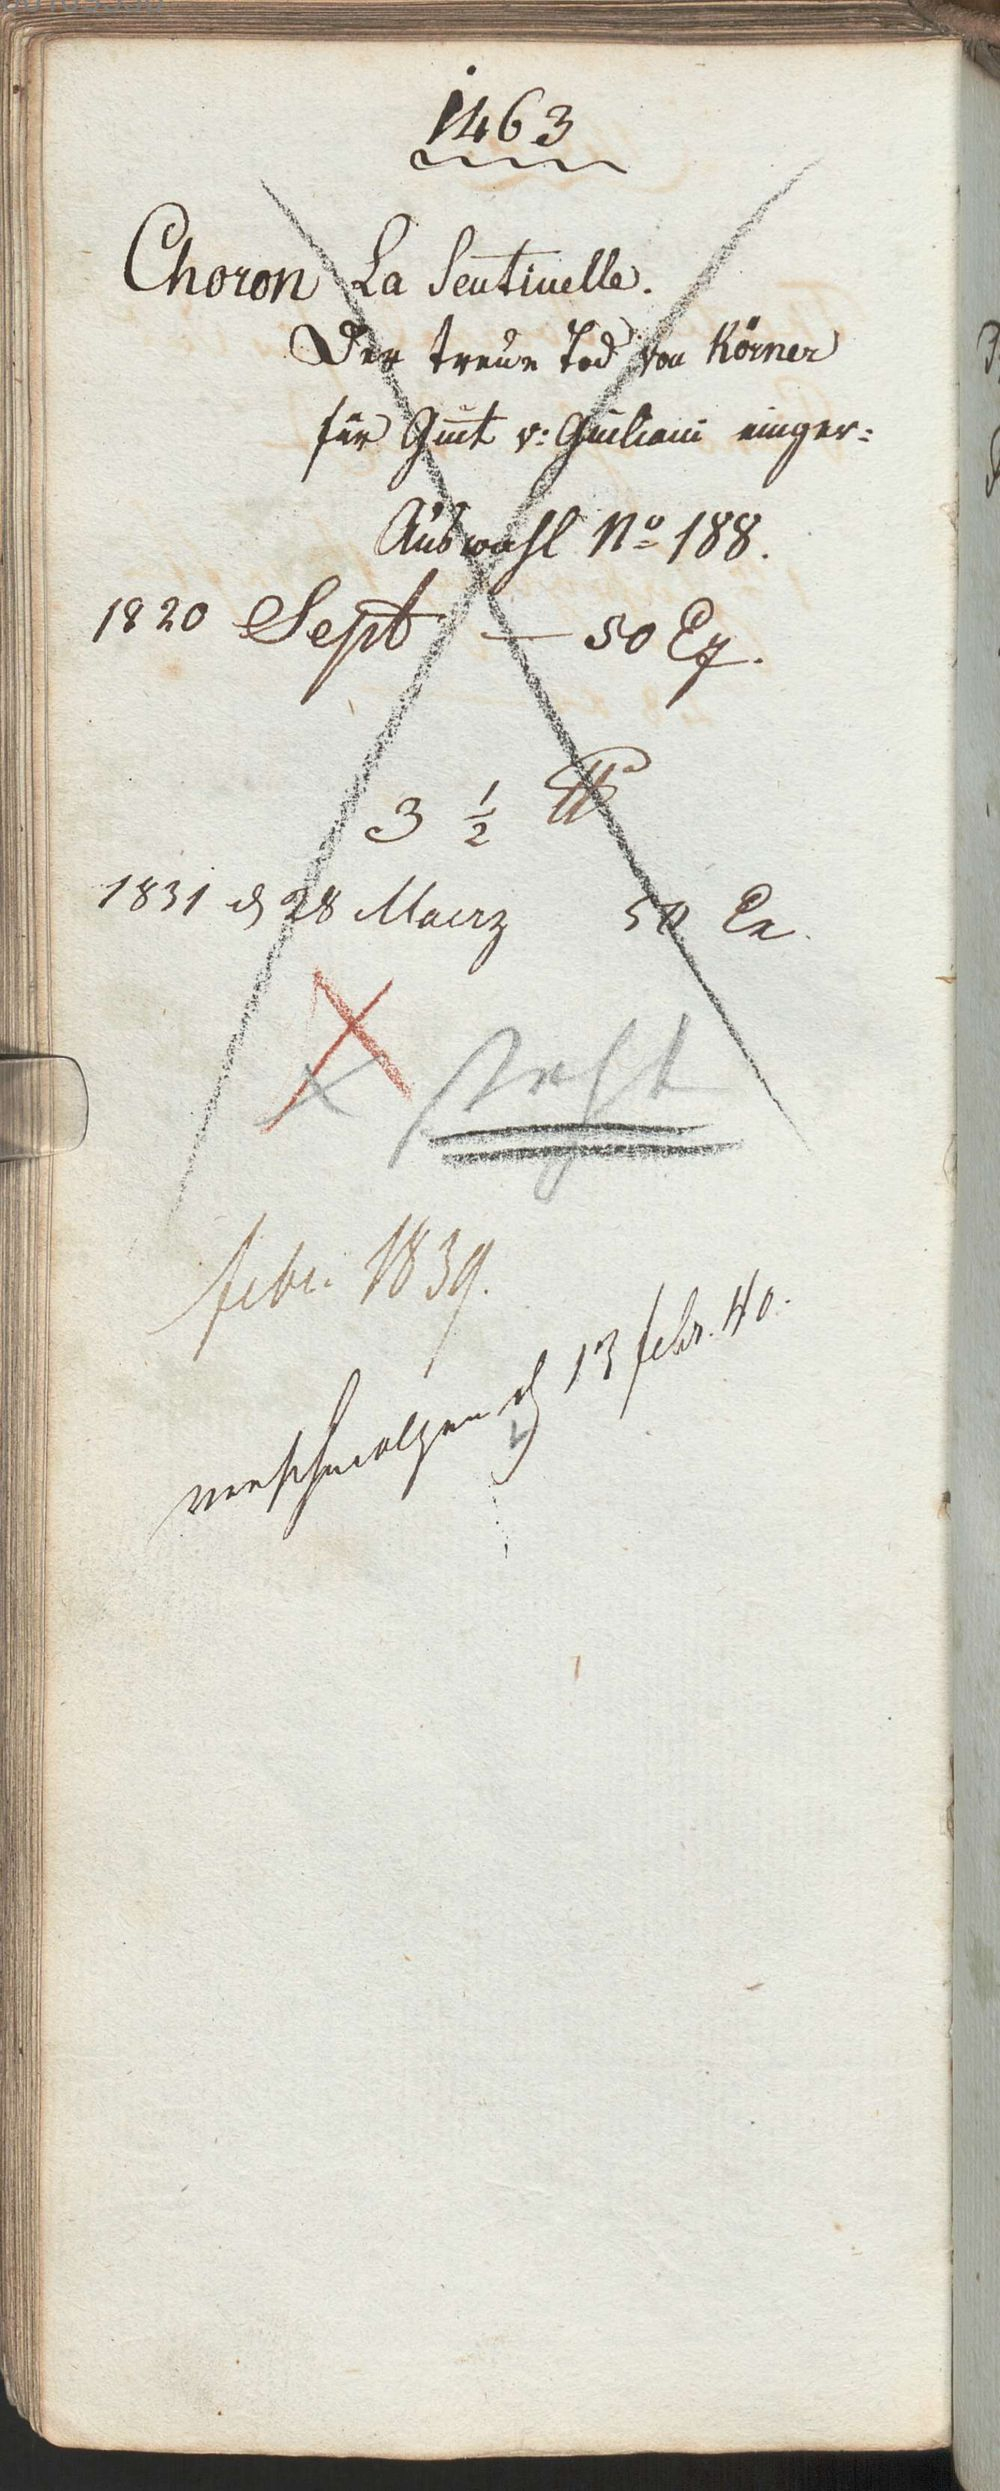 1463
Choron La Sentinelle.
Der treue Tod von Körner
für Guit v: Giuliani einger:
Auswahl No 188.
1820 Sept — 50 Ex.
3 1/2 ℔
1831 d 28 Maerz 50 Ex.
steht
febr. 1839.
verschmolzen d 13 febr. 40.